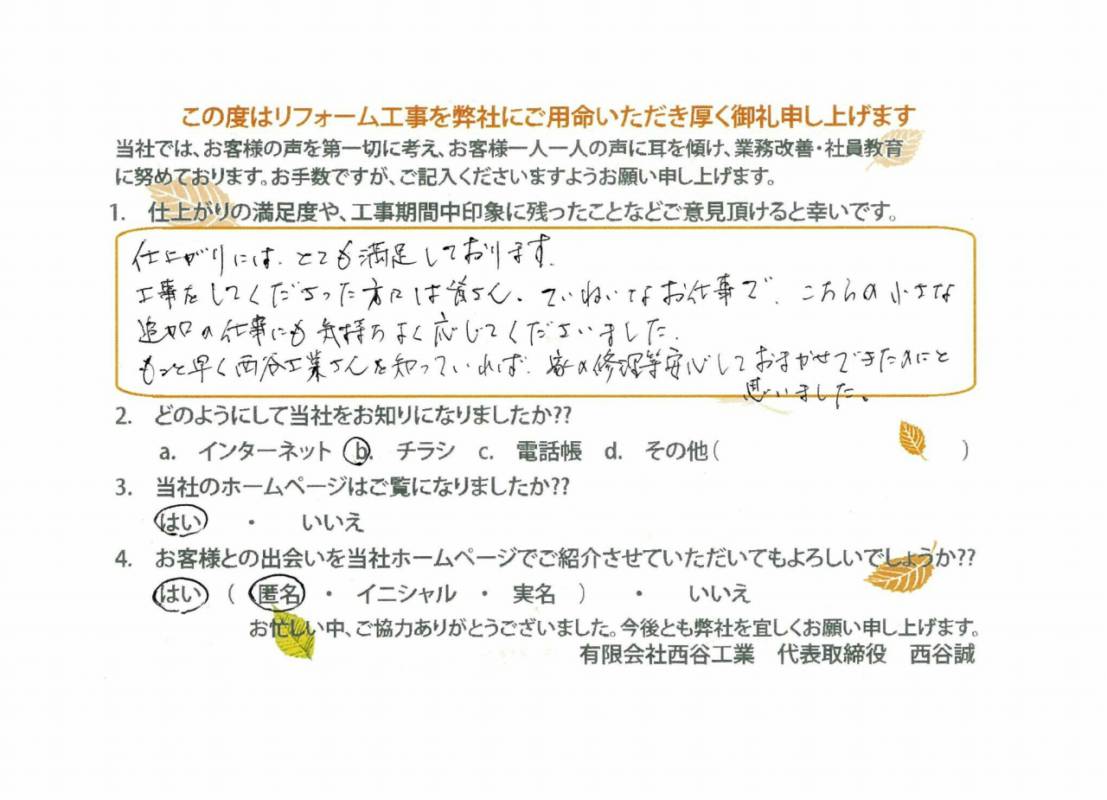 この度はリフォーム工事を弊社にご用命いただき厚く御礼申し上げます
当社では、お客様の声を第一切に考え、お客様一人一人の声に耳を傾け、業務改善・社員教育
に努めております。お手数ですが、ご記入くださいますようお願い申し上げます。
1. 仕上がりの満足度や、工事期間中印象に残ったことなどご意見頂けると幸いです。
仕上がりには、とても満足しております。
工事をしてくださった方には皆さん、ていねいなお仕事で、こちらの小さな
追加の仕事にも気持ちよく応じてくださいました。
もっと早く西谷工業さんを知っていれば、家の修理等安心しておまかせできたのにと
思いました。
2. どのようにして当社をお知りになりましたか??
a. インターネット b. チラシ c. 電話帳 d. その他( )
3. 当社のホームページはご覧になりましたか??
はい ・ いいえ
4. お客様との出会いを当社ホームページでご紹介させていただいてもよろしいでしょうか??
はい ( 匿名 ・ イニシャル ・ 実名 ) ・ いいえ
お忙しい中、ご協力ありがとうございました。今後とも弊社を宜しくお願い申し上げます。
有限会社西谷工業 代表取締役 西谷誠